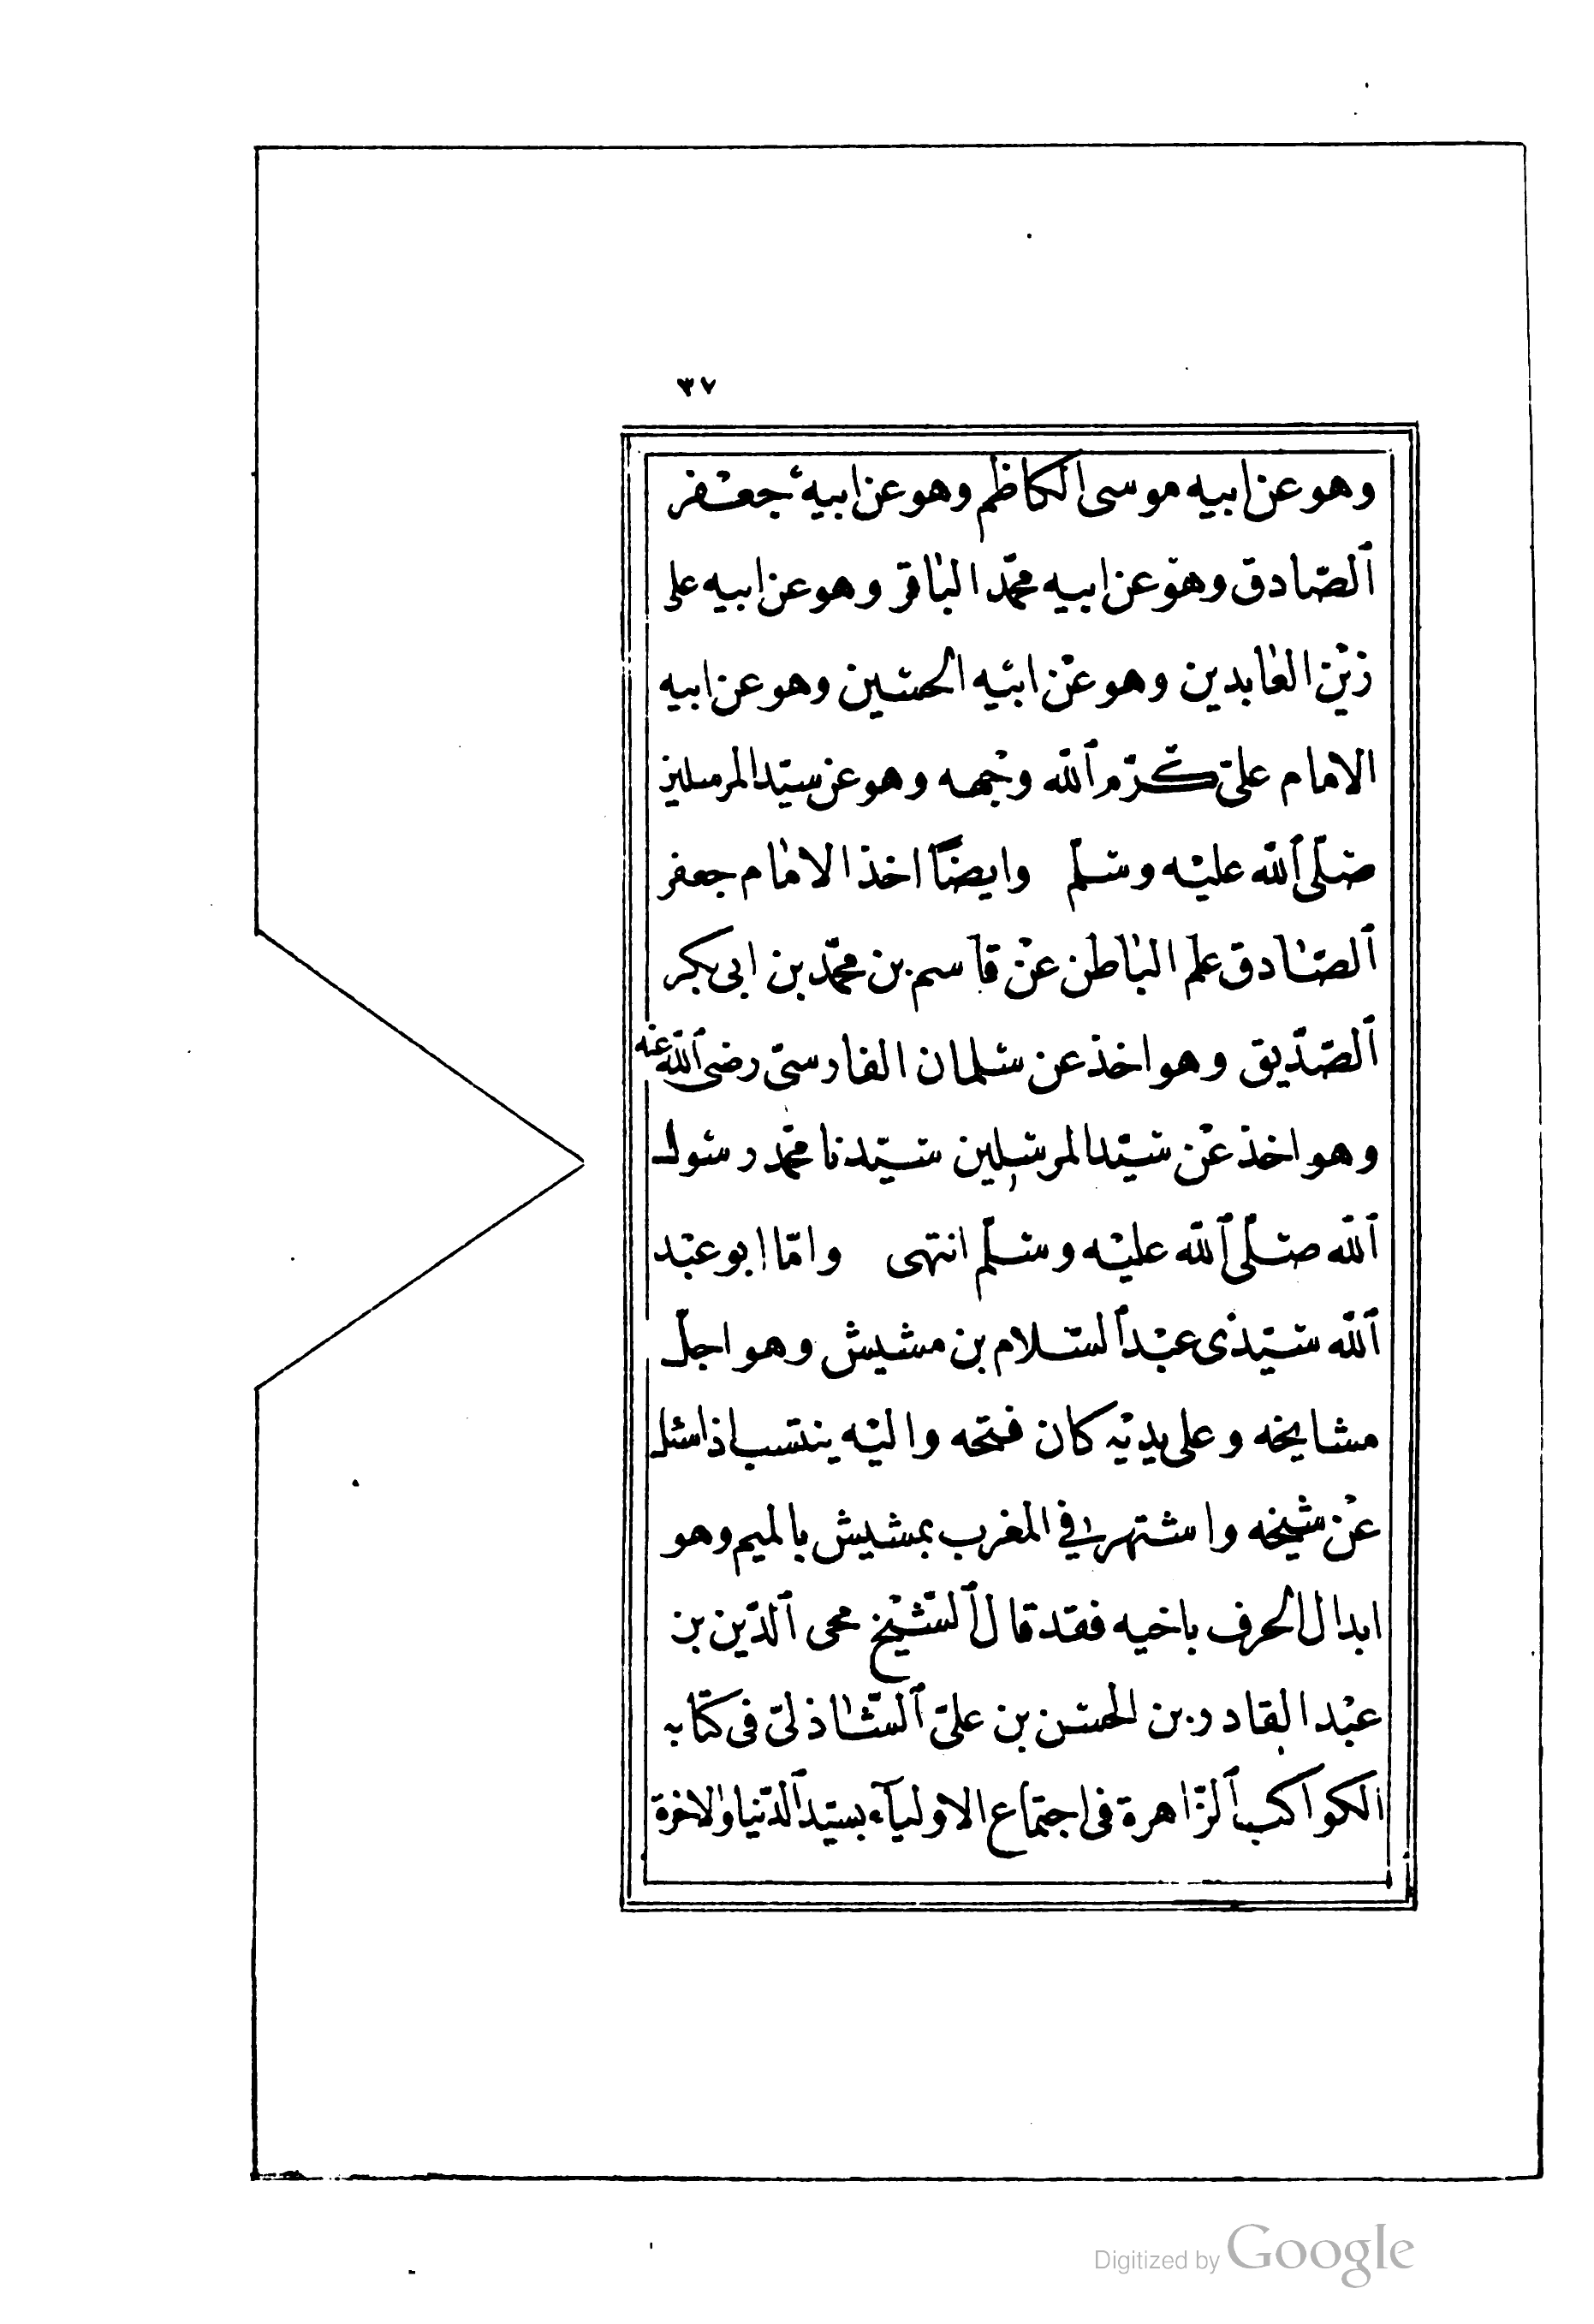 ٣٧
وهو عن ابيه موسى الكاظم وهو عن ابيه جعفر
الصّادق وهو عن ابيه محمّد الباقر وهو عن ابيه على
زين العابدين وهو عن ابيه الحسين وهو عن ابيه
الامام علىّ كرّم الله وجهه وهو عن سيّد المرسلين
صلّى الله عليه وسلّم وايضًا اخذ الامام جعفر
الصّادق علم الباطن عن قاسم بن محمّد بن ابى بكر
الصّدّيق وهو اخذ عن سلمان الفارسىّ رضى الله عنه
وهو اخذ عن سيّد المرسلين سيّدنا محمّد رسول
الله صلّى الله عليه وسلّم انتهى وامّا ابو عبد
الله سيّدى عبد السّلام بن مشيش وهو اجلّ
مشايخه وعلى يديه كان فتحه واليه ينتسب اذا سئل
عن شيخه واشتهر في المغرب بمشيش بالميم وهو
ابدال الحرف باخيه فقد قال الشّيخ محى الدّين بن
عبد القادر بن الحسن بن علىّ الشّاذلىّ فى كتابه
الكواكب الزّاهرة فى اجتماع الاوليآء بسيّد الدّنيا والاخرة
Digitized by Google